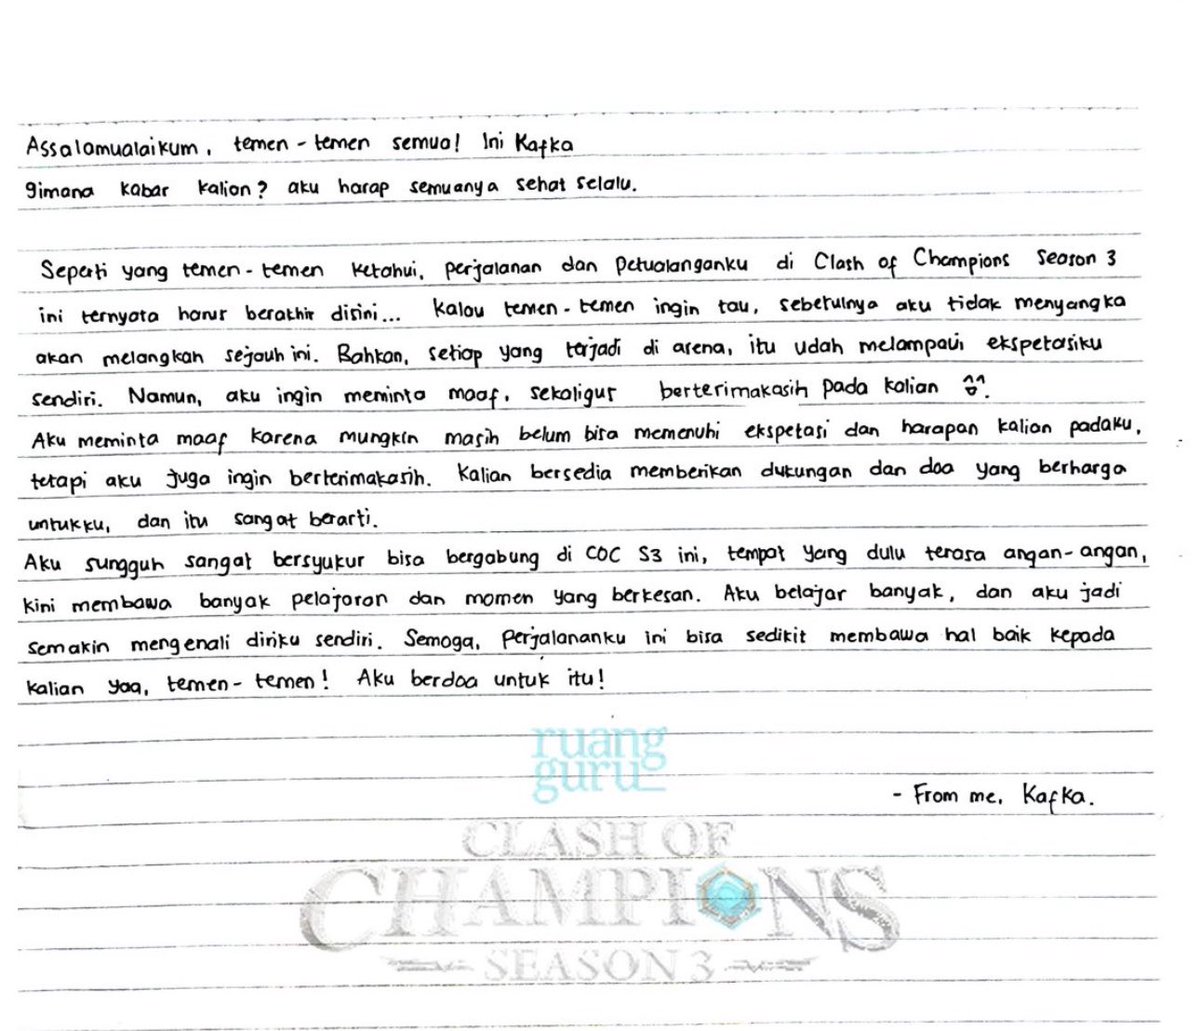 Assalamualaikum, temen-temen semua! Ini Kafka
gimana kabar kalian? aku harap semuanya sehat selalu.
Seperti yang temen-temen ketahui, perjalanan dan petualanganku di Clash of Champions Season 3
ini ternyata harus berakhir disini... kalau temen-temen ingin tau, sebetulnya aku tidak menyangka
akan melangkah sejauh ini. Bahkan, setiap yang terjadi di arena, itu udah melampaui ekspetasiku
sendiri. Namun, aku ingin meminta maaf, sekaligus berterimakasih pada kalian ^^.
Aku meminta maaf karena mungkin masih belum bisa memenuhi ekspetasi dan harapan kalian padaku,
tetapi aku juga ingin berterimakasih. Kalian bersedia memberikan dukungan dan doa yang berharga
untukku, dan itu sangat berarti.
Aku sungguh sangat bersyukur bisa bergabung di COC S3 ini, tempat yang dulu terasa angan-angan,
kini membawa banyak pelajaran dan momen yang berkesan. Aku belajar banyak, dan aku jadi
semakin mengenali diriku sendiri. Semoga, perjalananku ini bisa sedikit membawa hal baik kepada
kalian yaa, temen-temen! Aku berdoa untuk itu!
ruang
guru
- From me, Kafka.
CLASH OF
CHAMPIONS
SEASON 3